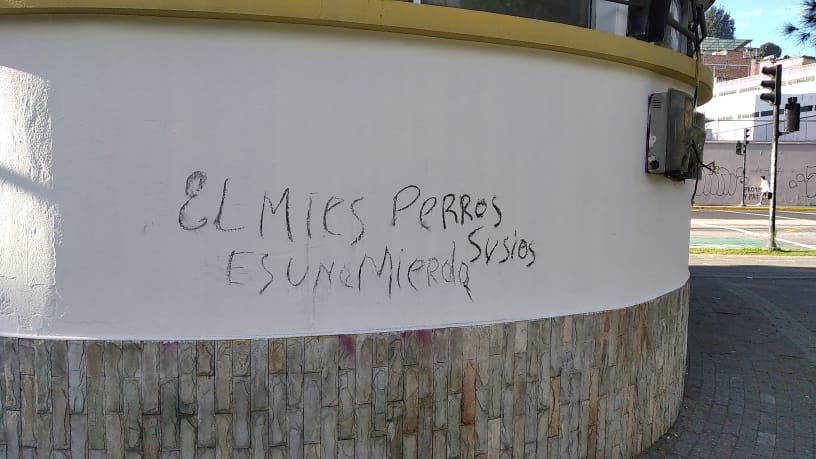 EL MIES PERROS
SUSIOS
ES UNA MIERDA